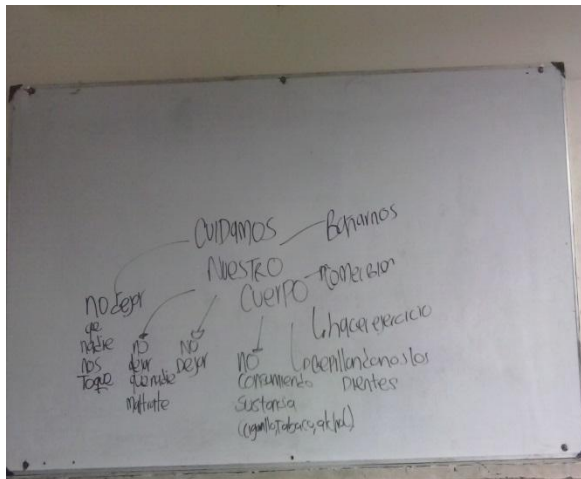 CUIDAMOS
NUESTRO
CUERPO
Bañarnos
Comer Bien
hacer ejercicio
cepillandonos los
Dientes
no dejar
que
nadie
nos
Toque
no
dejar
que nadie
maltrate
NO
DEJAR
NO
Consumiendo
Sustansa
(cigarrillo, Tabaco, alchol)